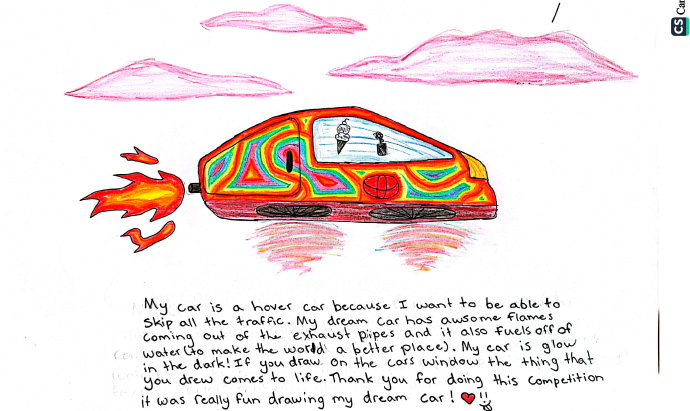 CS Car
My car is a hover car because I want to be able to
skip all the traffic. My dream car has awsome flames
coming out of the exhaust pipes and it also fuels off of
water (to make the world a better place). My car is glow
in the dark! If you draw on the cars window the thing that
you drew comes to life. Thank you for doing this competition
it was really fun drawing my dream car!